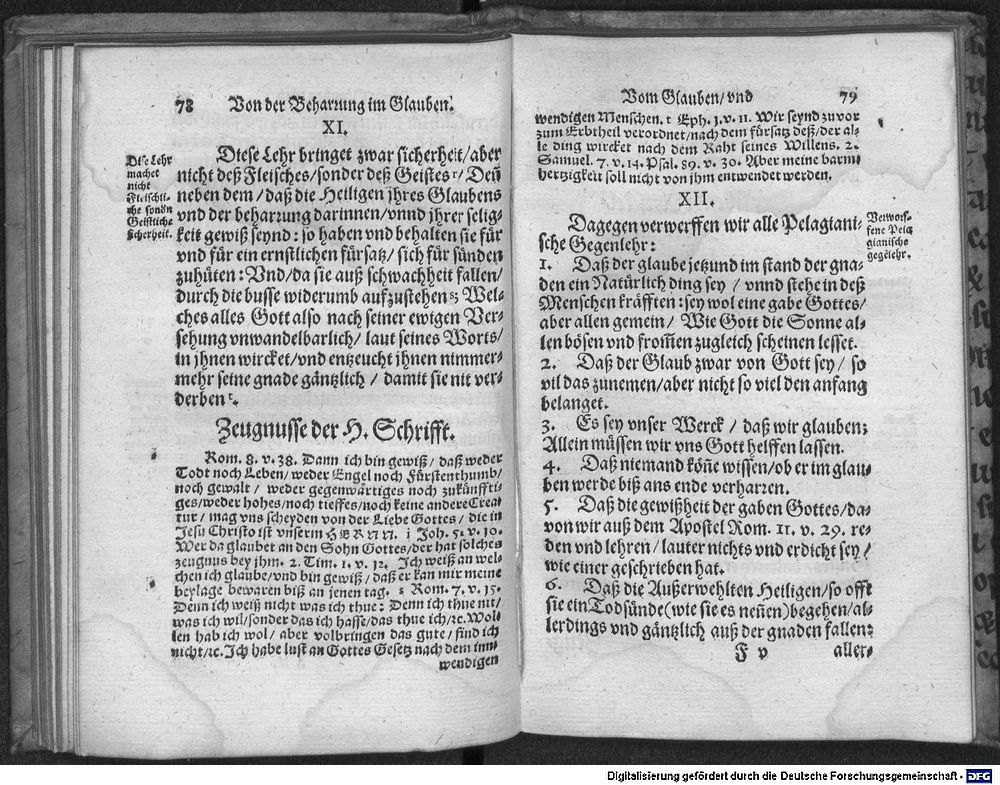 78 Von der Beharrung im Glauben.
XI.
Diese Lehr
machet
nicht
Fleischli-
che sonđn
Geistliche
Sicherheit.
Diese Lehr bringet zwar sicherheit/aber
nicht deß Fleisches/sonder deß Geistes r/ Deñ
neben dem/ daß die Heiligen jhres Glaubens
vnd der beharzung darinnen/vnnd jhrer selig-
keit gewiß seynd: so haben vnd behalten sie für
vnd für ein ernstlichen fürsatz/ sich für sünden
zuhüten: Vnd/da sie auß schwachheit fallen/
durch die busse widerumb aufzustehen s; Wel-
ches alles Gott also nach seiner ewigen Ver-
sehung vnwandelbarlich/ laut seines Worts/
in jhnen wircket/vnd enzeucht jhnen nimmer-
mehr seine gnade gäntzlich/ damit sie nit ver-
derben t.
Zeugnusse der H. Schrifft.
r Rom. 8. v. 38. Dann ich bin gewiß/ daß weder
Todt noch Leben/ weder Engel noch Fürstenthumb/
noch gewalt/ weder gegenwärtiges noch zukünffti-
ges/weder hohes/noch tieffes/noch keine andere Crea-
tur/ mag vns scheyden von der Liebe Gottes/ die in
Jesu Christo ist vnserm HERRN. j Joh. 5. v. 10.
Wer da glaubet an den Sohn Gottes/der hat solches
zeugnus bey jhm. 2. Tim. 1. v. 12. Ich weiß an wel-
chen ich glaube/vnd bin gewiß/ daß er kan mir meine
beylage bewaren biß an jenen tag. s Rom. 7. v. 15.
Denn ich weiß nicht was ich thue: Denn ich thue nit/
was ich wil/sonder das ich hasse/das thue ich/ꝛc. Wol-
len hab ich wol/ aber volbringen das gute/ find ich
nicht/ꝛc. Ich habe lust an Gottes Gesetz nach dem inn-
wendigen
Vom Glauben/ vnd 79
wendigen Menschen. t Eph. 1. v. 11. Wir seynd zuvor
zum Erbtheil verordnet/nach dem fürsatz deß/der al-
le ding wircket nach dem Raht seines Willens. 2.
Samuel. 7. v. 14. Psal. 89. v. 30. Aber meine barm-
hertzigkeit soll nicht von jhm entwendet werden.
XII.
Dagegen verwerffen wir alle Pelagiani-
sche Gegenlehr:
Verworf-
fene Pela
gianische
gegẽlehr.
1. Daß der glaube jetzund im stand der gna-
den ein Natürlich ding sey/ vnnd stehe in deß
Menschen kräfften: sey wol eine gabe Gottes/
aber allen gemein/ Wie Gott die Sonne al-
len bösen vnd from̃en zugleich scheinen lesset.
2. Daß der Glaub zwar von Gott sey/ so
vil das zunemen/aber nicht so viel den anfang
belanget.
3. Es sey vnser Werck/ daß wir glauben;
Allein müssen wir vns Gott helffen lassen.
4. Daß niemand köñe wissen/ob er im glau-
ben werde biß ans ende verharren.
5. Daß die gewißheit der gaben Gottes/da-
von wir auß dem Apostel Rom. 11. v. 29. re-
den vnd lehren/ lauter nichts vnd erdicht sey/
wie einer geschrieben hat.
6. Daß die Außerwehlten Heiligen/so offt
sie ein Todsünde (wie sie es neñen) begehen/al-
lerdings vnd gäntzlich auß der gnaden fallen:
F v aller-
Digitalisierung gefördert durch die Deutsche Forschungsgemeinschaft - DFG